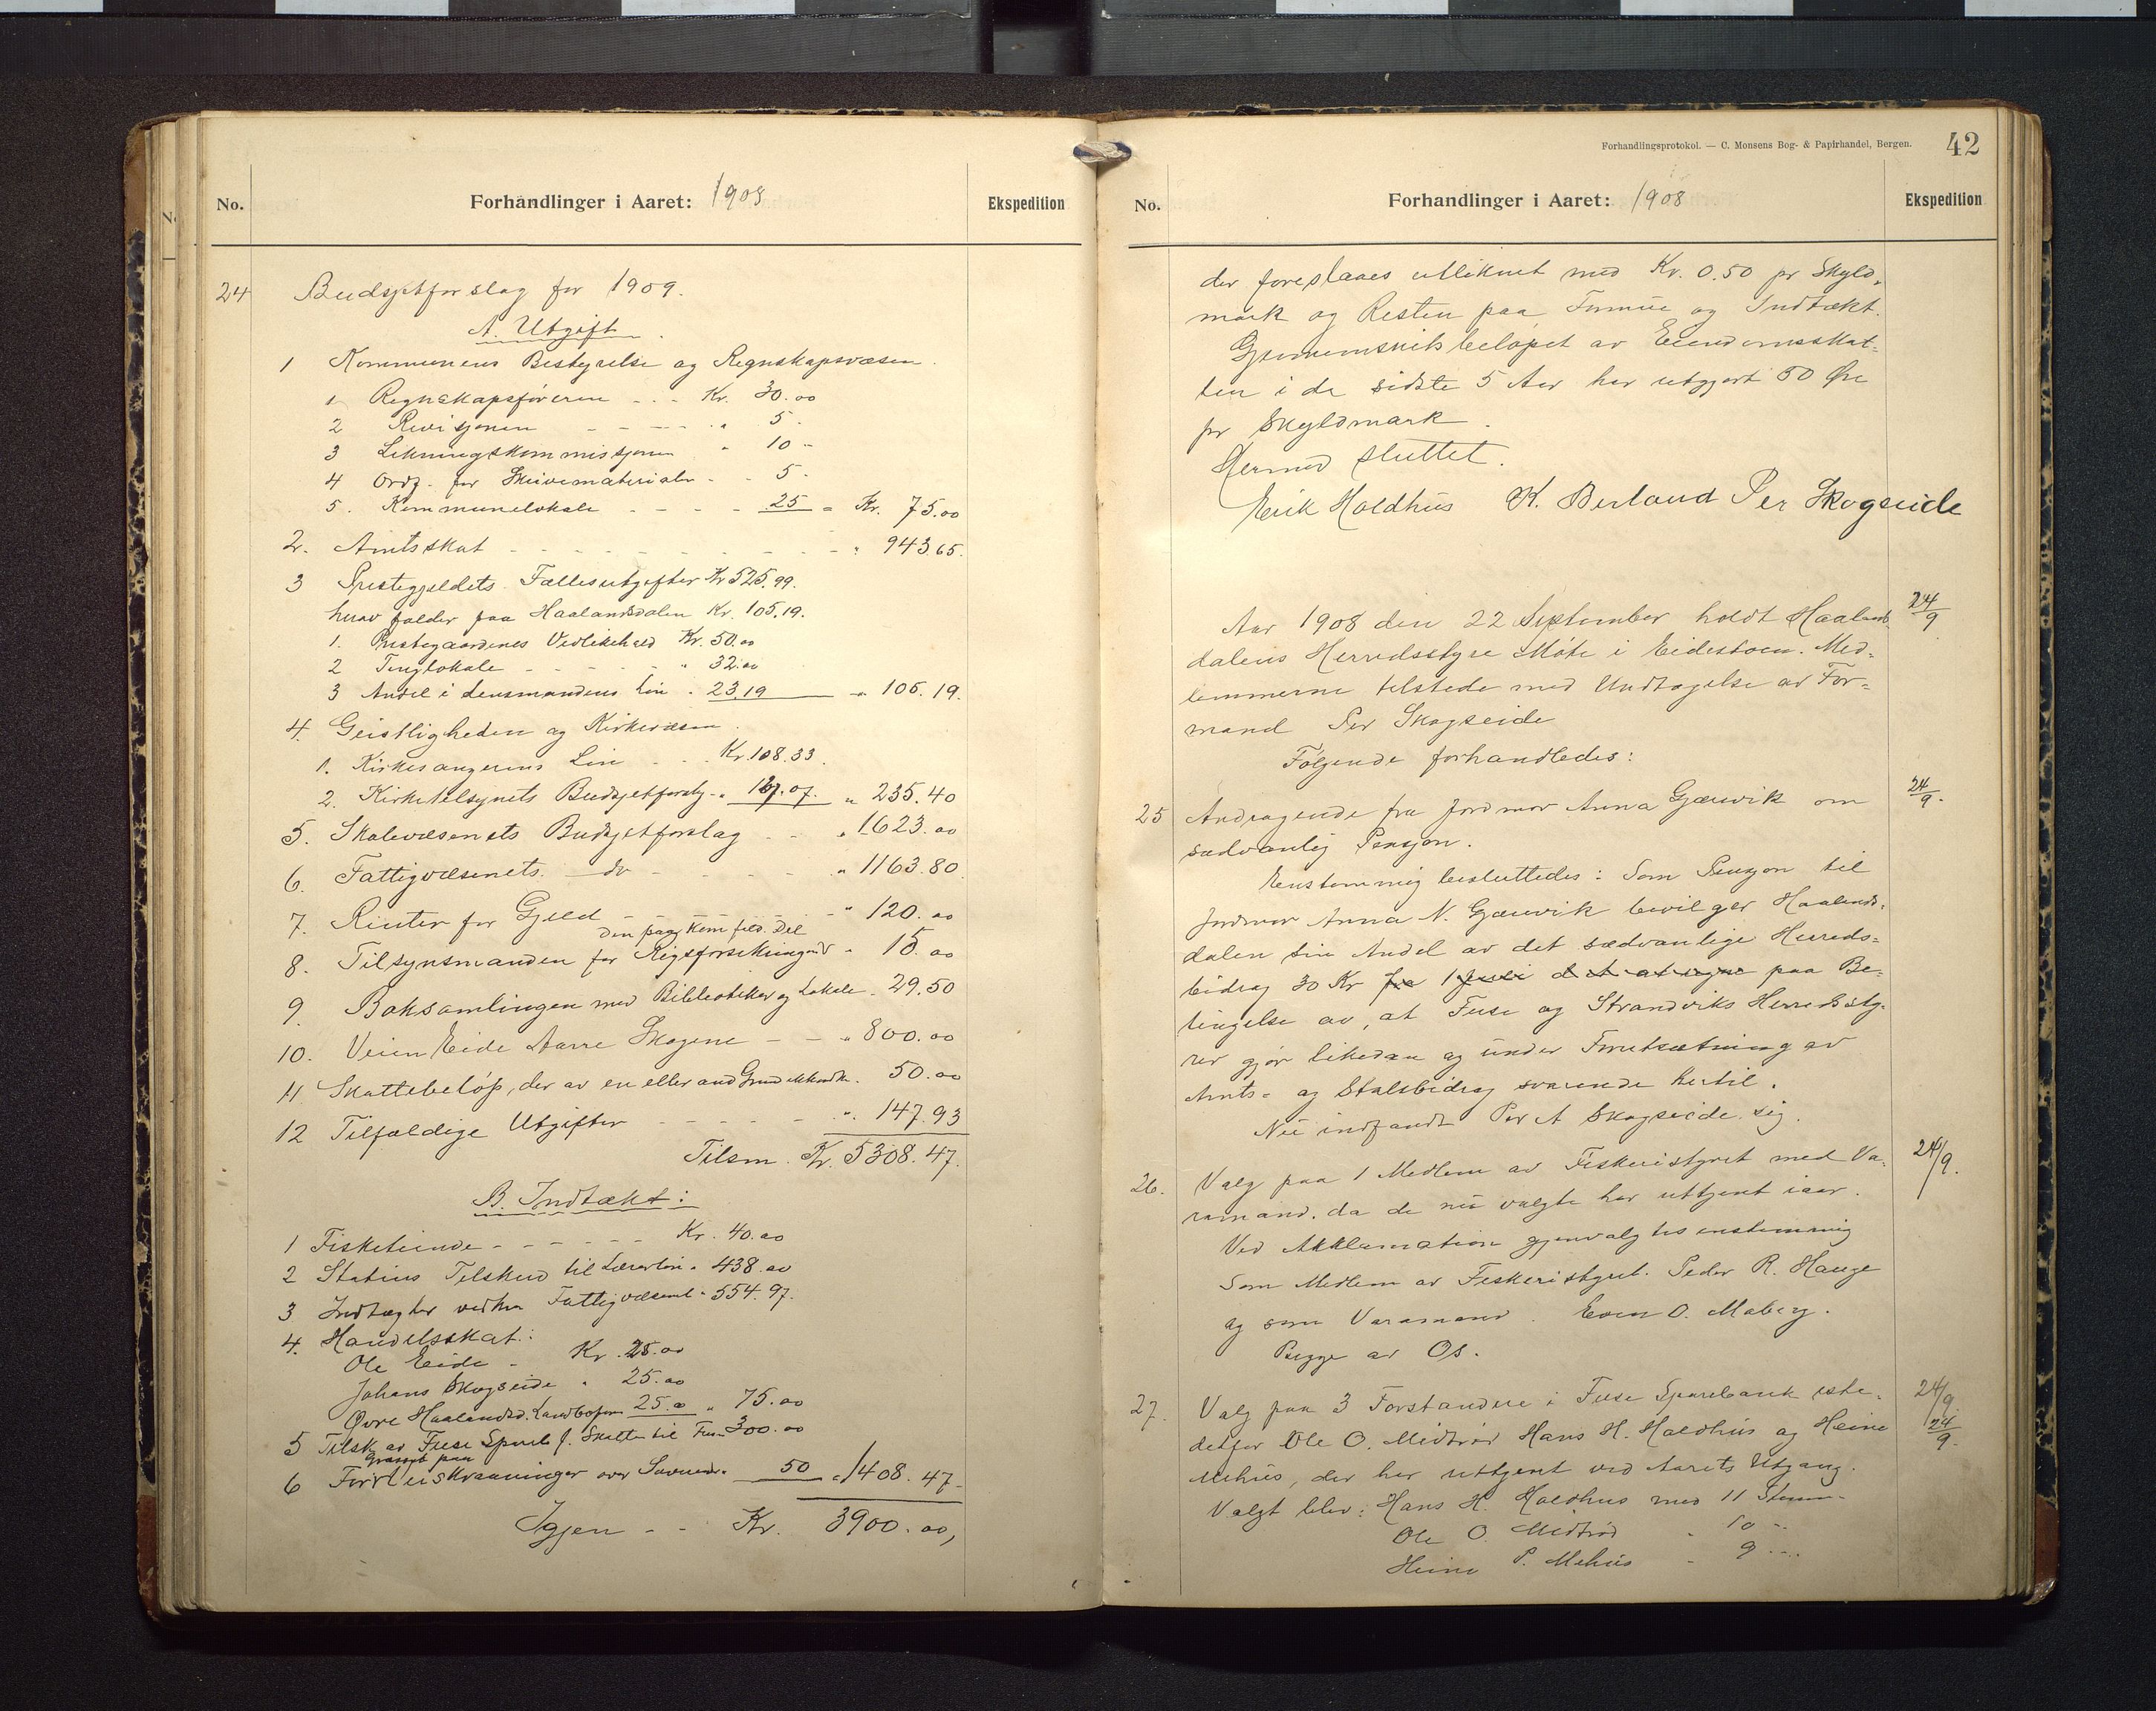 No.
Forhandlinger i Aaret: 1908
Ekspedition
24 Budsjetforslag for 1909.
A. Utgift.
1 Kommunens Bestyrelse og Regnskapsvæsen.
1 Regnskapsføreren - - - Kr. 30.00
2 Revisjonen - - - - " 5 -
3 Likningskommissjonen " 10 -
4 Ordf. for Skrivematerialer - " 5 -
5. Kommunelokale - - - - 25 " Kr. 75.00
2. Amtsskat - - - - - - - - - " 943.65.
3 Prestegjeldets Fællesutgifter Kr 525.99.
hvav falder paa Haalandsdalen Kr. 105.19.
1. Prestegaardenes Vedlikehold Kr. 50.00
2 Tinglokale - - - - - " 32.00
3 Andel i Lensmandens Løn " 23.19 " 105.19.
4. Geistligheden og Kirkevæsen.
1. Kirkesangerens Løn - - - Kr. 108.33.
2. Kirketilsynets Budsjetforslag - " 127.07. " 235.40
5. Skolevæsenets Budsjetforslag - - " 1623.00
6. Fattigvæsenets do - - - - - " 1163.80
7. Renter for Gjeld - - - - " 120.00
den paa Kom fald. Del
8. Tilsynsmanden for Rigsforsikringsand " 15.00
9. Boksamlingen med Bibliotekar og Lokale - 29.50
10. Veien Eide Aarre Skogene - - " 800.00
11 Skattebeløp, der av en eller and Grund 50.00
12 Tilfældige Utgifter - - - - - " 147.93
Tilsm. Kr. 5308.47.
B. Indtækt:
1 Fisketiende - - - - - - Kr. 40.00
2 Statens Tilskud til Lærerløn " 438.00
3 Indtægter vedkm Fattigvæsenet " 554.97.
4. Handelsskat:
Ole Eide - Kr. 25.00
Johans Skogseide " 25.00
Øvre Haalandsd. Landbofor 25.00 " 75.00
5 Tilsk. av Fuse Spareb f. Skatten til Fuse 300.00
Græsgb paa
6 50 " 1408.47 -
Igjen - - Kr. 3900.00,
Forhandlingsprotokol. — C. Monsens Bog- & Papirhandel, Bergen.
42
No.
Forhandlinger i Aaret: 1908
Ekspedition
der foreslaaes utliknet med Kr. 0.50 pr Skyld-
mark og Resten paa Formue og Indtækt.
Gjennemsnitsbeløpet av Eiendomsskat-
ten i de sidste 5 Aar har utgjort 50 Øre
pr Skyldmark.
Hermed sluttet.
Erik Holdhus K. Berland Per Skogseide
Aar 1908 den 22 September holdt Haalands- 24/9
dalens Herredsstyre Møte i Eidestoen. Med-
lemmerne tilstede med Undtagelse av For-
mand Per Skogseide
Følgende forhandledes:
25 Andragende fra Jordmor Anna Gjæravik om 24/9.
sædvanlig Pensjon.
Enstemmig besluttedes: Som Pensjon til
Jordmor Anna N. Gjæravik bevilger Haalands-
dalen sin Andel av det sædvanlige Herreds-
bidrag 30 Kr fra 1 Juli d A at regne paa Be-
tingelse av, at Fuse og Strandviks Herredssty-
rer gjør likedan og under Forutsætning av
Amts- og Statsbidrag svarende hertil.
Nu indfandt Per A Skogseide sig.
26. Valg paa 1 Medlem av Fiskeristyret med Va- 24/9.
ramand. da de nu valgte har uttjent iaar.
Ved Akklamation gjenvalgtes enstemmig
Som Medlem av Fiskeristyret. Peder R. Hauge
og som Varamand. Even O. Moberg.
Begge av Os.
27. Valg paa 3 Forstandere i Fuse Sparebank iste- 24/9.
detfor Ole O. Midtrød Hans H. Holdhus og Heine 24/9.
Mehus, der har uttjent ved Aarets Utgang.
Valgt blev: Hans H. Holdhus med 11 Stem-
Ole O. Midtrød " 10 -
Heine P. Mehus - 9 - -